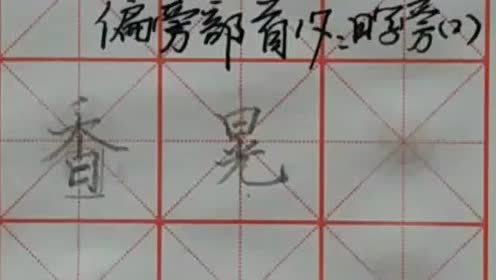 偏旁部首17:日字旁(2)
香 晃